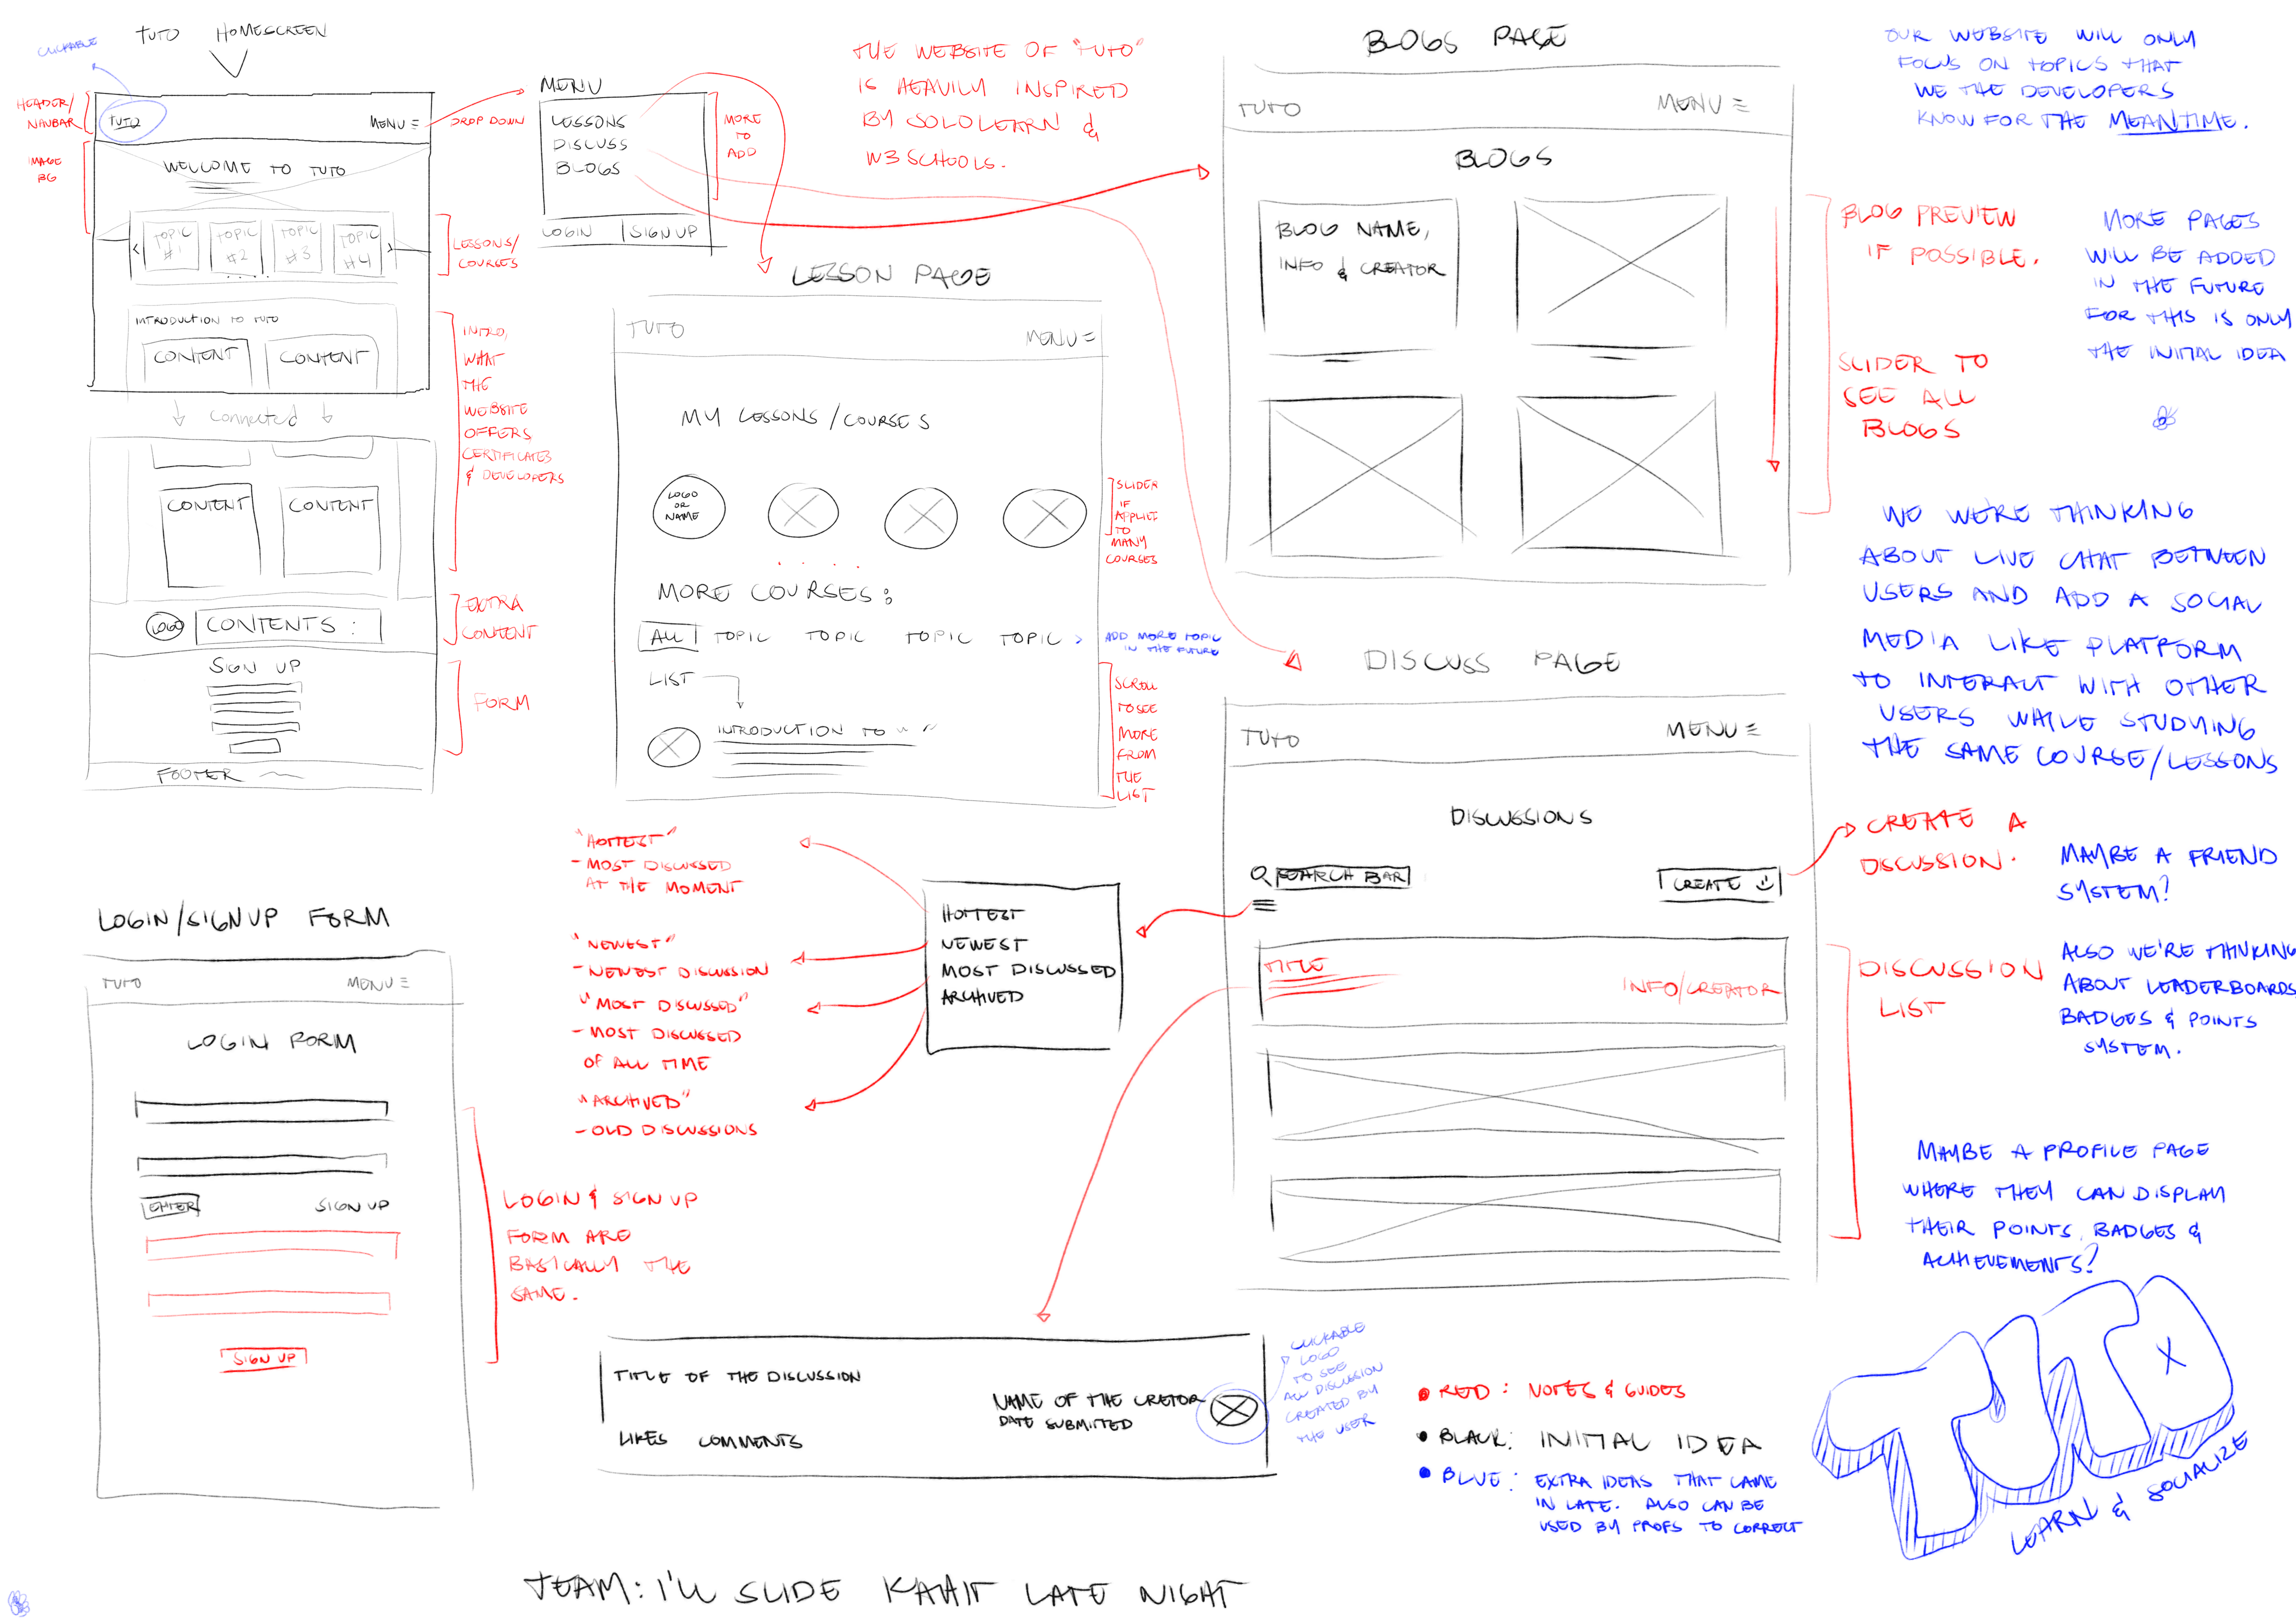 TUTO HOMESCREEN
CLICKABLE
HEADER/
NAVBAR
TUTO
MENU
DROP DOWN
IMAGE
BG
WELCOME TO TUTO
TOPIC
#1
TOPIC
#2
TOPIC
#3
TOPIC
#4
LESSONS/
COURSES
INTRODUCTION TO TUTO
CONTENT
CONTENT
INTRO,
WHAT
THE
WEBSITE
OFFERS
CERTIFICATES
& DEVELOPERS
Connected
CONTENT
CONTENT
LOGO
CONTENTS :
EXTRA
CONTENT
SIGN UP
FORM
FOOTER
MENU
LESSONS
DISCUSS
BLOGS
LOGIN
SIGNUP
MORE
TO
ADD
THE WEBSITE OF "TUTO"
IS HEAVILY INSPIRED
BY SOLOLEARN &
W3SCHOOLS.
LESSON PAGE
TUTO
MENU
MY LESSONS/COURSES
LOGO
OR
NAME
SLIDER
IF
APPLIED
TO
MANY
COURSES
MORE COURSES:
ALL
TOPIC
TOPIC
TOPIC
TOPIC >
ADD MORE TOPIC
IN THE FUTURE
LIST
INTRODUCTION TO " "
SCROLL
TO SEE
MORE
FROM
THE
LIST
BLOGS PAGE
TUTO
MENU
BLOGS
BLOG NAME,
INFO & CREATOR
BLOG PREVIEW
IF POSSIBLE.
SLIDER TO
SEE ALL
BLOGS
OUR WEBSITE WILL ONLY
FOCUS ON TOPICS THAT
WE THE DEVELOPERS
KNOW FOR THE MEANTIME.
MORE PAGES
WILL BE ADDED
IN THE FUTURE
FOR THIS IS ONLY
THE INITIAL IDEA
WE WERE THINKING
ABOUT LIVE CHAT BETWEEN
USERS AND ADD A SOCIAL
MEDIA LIKE PLATFORM
TO INTERACT WITH OTHER
USERS WHILE STUDYING
THE SAME COURSE/LESSONS
DISCUSS PAGE
TUTO
MENU
DISCUSSIONS
SEARCH BAR
CREATE
CREATE A
DISCUSSION.
TITLE
INFO/CREATOR
DISCUSSION
LIST
MAYBE A FRIEND
SYSTEM?
ALSO WE'RE THINKING
ABOUT LEADERBOARDS
BADGES & POINTS
SYSTEM.
MAYBE A PROFILE PAGE
WHERE THEY CAN DISPLAY
THEIR POINTS, BADGES &
ACHIEVEMENTS?
"HOTTEST"
- MOST DISCUSSED
AT THE MOMENT
"NEWEST"
- NEWEST DISCUSSION
"MOST DISCUSSED"
- MOST DISCUSSED
OF ALL TIME
"ARCHIVED"
- OLD DISCUSSIONS
HOTTEST
NEWEST
MOST DISCUSSED
ARCHIVED
LOGIN/SIGNUP FORM
TUTO
MENU
LOGIN FORM
ENTER
SIGN UP
SIGN UP
LOGIN & SIGN UP
FORM ARE
BASICALLY THE
SAME.
TITLE OF THE DISCUSSION
NAME OF THE CRETOR
DATE SUBMITTED
LIKES COMMENTS
CLICKABLE
LOGO
TO SEE
ALL DISCUSSION
CREATED BY
THE USER
RED : NOTES & GUIDES
BLACK : INITIAL IDEA
BLUE : EXTRA IDEAS THAT CAME
IN LATE. ALSO CAN BE
USED BY PROFS TO CORRECT
TUTO
LEARN & SOCIALIZE
TEAM: I'LL SLIDE KAHIT LATE NIGHT